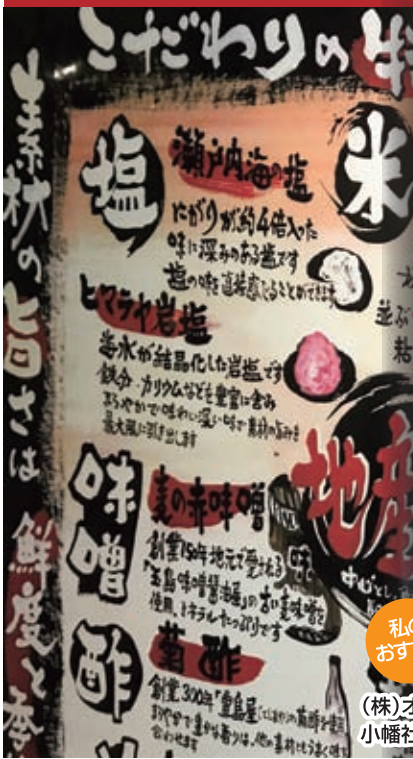 こだわりの特
素材の旨さは 鮮度と季
塩
瀬戸内海の塩
にがりが約4倍入った
味に深みのある塩です
塩の味を直接感じることができます
ヒマラヤ岩塩
海水が結晶化した岩塩です
鉄分・カリウムなどを豊富に含み
まろやかで味わい深い味で素材の旨みを
最大限に引き出します
味噌
麦の赤味噌
創業150年地元で愛される
味噌醤油屋」の古い麦味噌を
使用、ミネラルたっぷりです
酢
菊酢
創業300年
まろやかで豊かな香りは、他の素材ともうまく
合わせます
米
並ぶ
粘
地産
私の
おす
(株)オ
小幡社